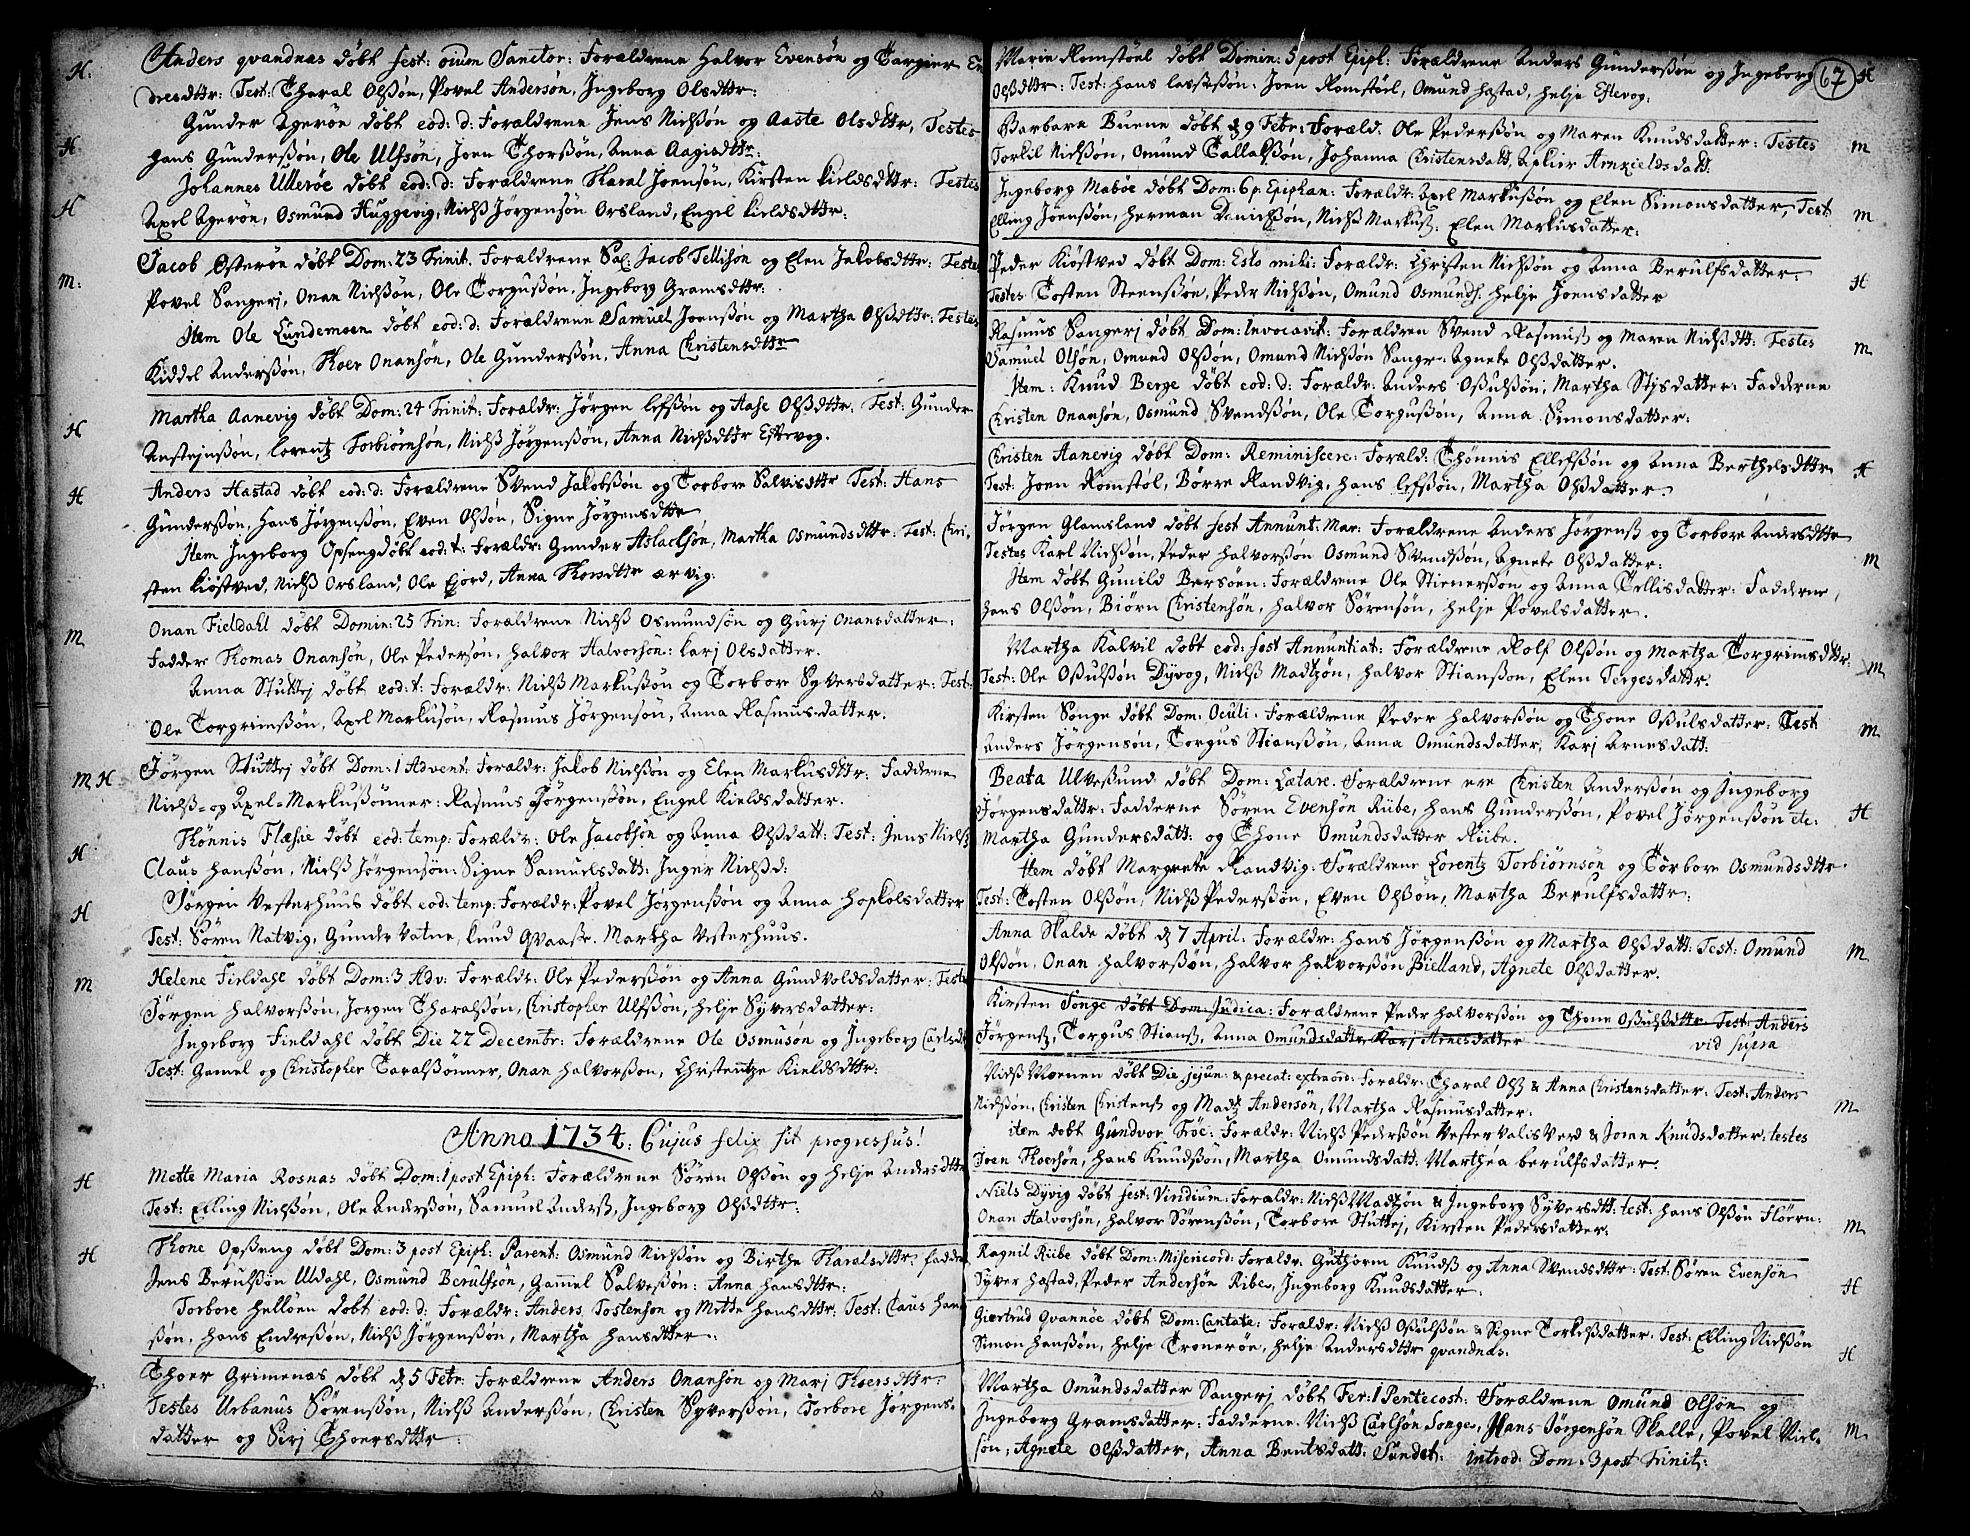 H. Anders qvandnas døbt fest: oium Sanctor: Forældrene Halvor Evensøn og Targier En
dresdttr: Test: Tharal Olssøn, Povel Andersøn, Ingeborg Olsdttr:
H. Gunder Agerøe døbt eod: d: Forældrene Jens Nielssøn og Aaste Olsdttr, Testes
Hans Gunderssøn, Ole Ulfsøn, Joen Thorssøn, Anna Aagisdttr:
Johannes Ullerøe døbt eod: d: Forældrene Tharal Joensøn, Kirsten Kieldsdttr: Testes
H Axel Agerøn, Osmund Huggevig, Nielss Jørgensøn Orsland, Engel Kieldsdttr:
Jacob Østerøn døbt Dom: 23 Trinit. Forældrene Sal: Jacob Tellisøn og Elen Jakobsdttr: Testes
M. Povel Sangerj, Onan Nielssøn, Ole Torgussøn, Ingeborg Gramsdttr:
Item Ole Lundemoen døbt eod: d: Forældrene Samuel Joenssøn og Martha Olssdttr: Testes
Kiddel Anderssøn, Thoer Onansøn, Ole Gunderssøn, Anna Christensdttr
Martha Aanevig døbt Dom: 24 Trinit: Forældr: Jørgen lefssøn og Aase Olssdttr. Test: Gunder
H Anstejnssøn, Lorentz Torbiørnsøn, Nielss Jørgenssøn, Anna Nielssdttr Eftevog.
H Anders Hastad døbt eod: d: Forældrene Svend Jakobssøn og Torbore Salvisdttr Test: Hans
Gunderssøn, Hans Jørgenssøn, Even Olssøn, Signe Jørgensdttr
Item Ingeborg Opseng døbt eod: t: Forældr: Gunder Aslachsøn, Martha Osmundsdttr: Test: Chri-
sten Kiøstved, Nielss Orsland, Ole Fjord, Anna Thorsdttr ærvig:
M Onan Fieldahl døbt Domin: 25 Trin: Forældrene Nielss Osmundsøn og Gurj Onansdatter:
Fadder Thomas Onansøn, Ole Pedersøn, Halvor Halvorsøn: Karj Olsdatter.
Anna Stuttej døbt eod: t: Forældr: Nielss Markussøn og Torbore Syversdatter: Test:
Ole Torgrimssøn, Axel Markusøn, Rasmus Jørgensøn, Anna Rasmusdatter.
M. H Jørgen Stuttej døbt Dom: 1 Advent: Forældr: Jakob Nielssøn og Elen Markusdttr: Fadderne
Nielss= og Axel= Markussønner: Rasmus Jørgenssøn, Engel Kieldsdatter.
Thønnis Flæsie døbt eod: temp: Forældr: Ole Jacobsøn og Anna Olssdatt: Test: Jens Nielss
H Claus Hanssøn, Nielss Jørgensøn: Signe Samuelsdatt: Inger Nielssd:
H Jørgen Vesterhuus døbt eod: temp: Forældr: Povel Jørgenssøn og Anna Hoskolsdatter
Test: Søren Natvig, Gunder Vatne, Knud Qvaase. Martha Vesterhuus.
M Helene Fieldahl døbt Dom: 3 Adv: Forældr: Ole Pederssøn og Anna Gundvoldsdatter: Testes
Jørgen Halvorssøn, Jørgen Tharalssøn, Christopher Ulfssøn, Helje Syversdatter:
Ingeborg Fieldahl døbt Die 27 Decembr: Forældrene Ole Osmusøn og Ingeborg Carlsd
Test: Gamel og Christopher Taralssønner, Onan Halvorssøn, Christentze Kieldsdttr:
Anno 1734. Cujus felix sit progressus!
H Mette Maria Rosnas døbt Dom: 1 post Epiph: Forældrene Søren Olssøn og Helje Andersdttr
Test: Elling Nielssøn, Ole Anderssøn, Samuel Anderss, Ingeborg Olssdttr:
H Thone Opsseng døbt Dom: 3 post Epiph: Parent: Osmund Nielssøn og Birthe Tharalsdttr. Fadder
Jens Berulssøn Uldahl, Osmund Berulfsøn, Gammel Salvessøn: Anna Hansdttr:
Torbore Helløen døbt eod: d: Forældr: Anders Tostensøn og Mette Hansdttr, Test: Claus Han-
søn, Hans Endressøn, Nielss Jørgenssøn, Martha Hansdtter:
Thoer Grimenæs døbt d 5 Febr: Forældrene Anders Onansøn og Marj Thoersdttr.
Testes Urbanus Sørenssøn, Nielss Anderssøn, Christen Syverssøn, Torbore Jørgens-
datter og Serj Thoersdttr:
67
Marin Romstøel døbt Domin: 5 post Epiph: Forældrene Anders Gunderssøn og Ingeborg H
Olssdttr: Test: Hans lassessøn: Joen Romstøel, Omund Hastad, Helje Eftevog:
Barbara Buene døbt d 9 Febr: Foræld: Ole Pederssøn og Maren Knudsdatter: Testes
Torkil Nielssøn, Omund Tallakssøn, Johanna Christensdatt, Aplier Arnkieldsdatt. M
Ingeborg Mabøe døbt Dom: 6 p. Epiphan: Forældr: Axel Markussøn og Elen Simonsdatter, Test
Elling Joenssøn, Herman Danielssøn, Nielss Markuss: Elen Markusdatter: M
Peder Kiøstved døbt Dom: Esto mihi: Forældr: Christen Nielssøn og Anna Berulfsdatter.
Testes Tosten Steenssøn, Peder Nielssøn, Omund Osmunds: Helje Joensdatter H
Rasmus Sangerj døbt Dom: Invocavit: Forældren Svend Rasmuss og Maren Nielssdtt: Testes
Samuel Olsøn, Omund Olssøn, Omund Nielssøn Sangr: Agnete Olssdatter. M
Item: Knud Berge døbt eod: d: Forældr: Anders Ossulssøn, Martha Stisdatter: Fadderne
Christen Onansøn, Osmund Svendssøn, Ole Torgussøn, Anna Simonsdatter:
Christen Aanevig døbt Dom: Reminiscere: Foræld: Thønnis Ellefssøn og Anna Berthelsdttr H
Test: Joen Romstøl, Børre Randvig, Hans lefssøn, Martha Olssdatter.
Jørgen Glamsland døbt fest Annunt. Mar: Forældrene Anders Jørgenss og Torbore Andersdttr
Testes Karl Nielssøn, Peder Halvorssøn Osmund Svendssøn, Agnete Olssdatter: M
Item døbt Gunild Bersøen: Forældrene Ole Stienerssøn og Anna Tellisdatter: Fadderne,
Hans Olssøn, Biørn Christensøn, Halvor Sørensøn, Helje Povelsdatter.
Martha Kalvil døbt eod: fest Annuntiat: Forældrene Rolf Olssøn og Martha Torgrimsdttr: M
Test: Ole Ossulssøn Dyvog, Nielss Madtzøn, Halvor Stiansson, Elen Tergesdattr.
Kirsten Songe døbt Dom: Oculi. Forældrene Peder Halvorssøn og Thone Ossulsdatter: Test M
Anders Jørgensøn, Torgus Stianssøn, Anna Omundsdatter, Karj Arnesdatt:
Beata Ulvessund døbt Dom: Lætare. Forældrene ere Christen Anderssøn og Ingeborg
Jørgensdattr: Fadderne Søren Evensøn Riibe, Hans Gunderssøn, Povel Jørgenssøn etc: H
Martha Gundersdatt: og Thone Omundsdatter Riibe.
Item døbt Margrete Randvig: Forældrene Lorentz Torbiørnsøn og Torbore Osmundsdttr.
Test: Tosten Olssøn, Nielss Pederssøn, Even Olssøn, Martha Berulfsdattr:
Anna Skalde døbt d 7 April: Forældr: Hans Jørgenssøn og Martha Olssdatt: Test: Omund M
Olssøn, Onan Halvorssøn, Halvor Halvorssøn Bielland, Agnete Olssdatter.
Kirsten Songe døbt Dom: Judica: Forældrene Peder Halvorssøn og Thone Ossulssdttr. Test: Anders
Jørgenss, Torgus Stianss, Anna Omundsdatter Karj Arnesdatter vid supra
Nielss Moenen døbt Die jejun: & precat: extraord: Forældr: Tharal Olss & Anna Christensdatter: Test: Anders
Nielssøn, Christen Christenss og Madtz Andersøn, Martha Rasmusdatter: M
item døbt Gundvor Trøe: Forældr: Nielss Pederssøn Vestervalis verd & Joran Knudsdatter: testes
Joen Thoersøn, Hans Knudssøn, Martha Omundsdatt: Marthea berulfsdatter.
Niels Dyvig døbt fest: Viridium: Forældr: Nielss Madtzøn & Ingeborg Syversdtt: test: Hans Olssøn Fløern:
Onan Halvorsøn, Halvor Sørenssøn, Torbore Stuttej, Kirsten Pedersdatter: M
Ragnil Riibe døbt Dom: Misericord: Forældr. Guthorm Knudss og Anna Svendsdttr: Test: Søren Evensøn
Syver Hastad, Peder Andersøn Ribe, Ingeborg Knudsdatter: H
Giertrud Qvannøe døbt Dom: Cantate: Forældr: Nielss Ossulssøn & Signe Torkelssdatter: Test: Elling Nielssøn
Simon Hanssøn, Helje Tronerøe, Helje Andersdttr qvandnas. H
Martha Omundsdatter Sangerj døbt Fer: 1 Pentecost: Forældrene Omund Olsøn og
Ingeborg Gramsdatter: Fadderne. Nielss Carlsøn Songe, Hans Jørgensøn Skalle, Povel Niel- M
søn, Agnete Olssdatter, Anna Bentsdatt: Sundet: introd: Dom: 3 post Trinit: